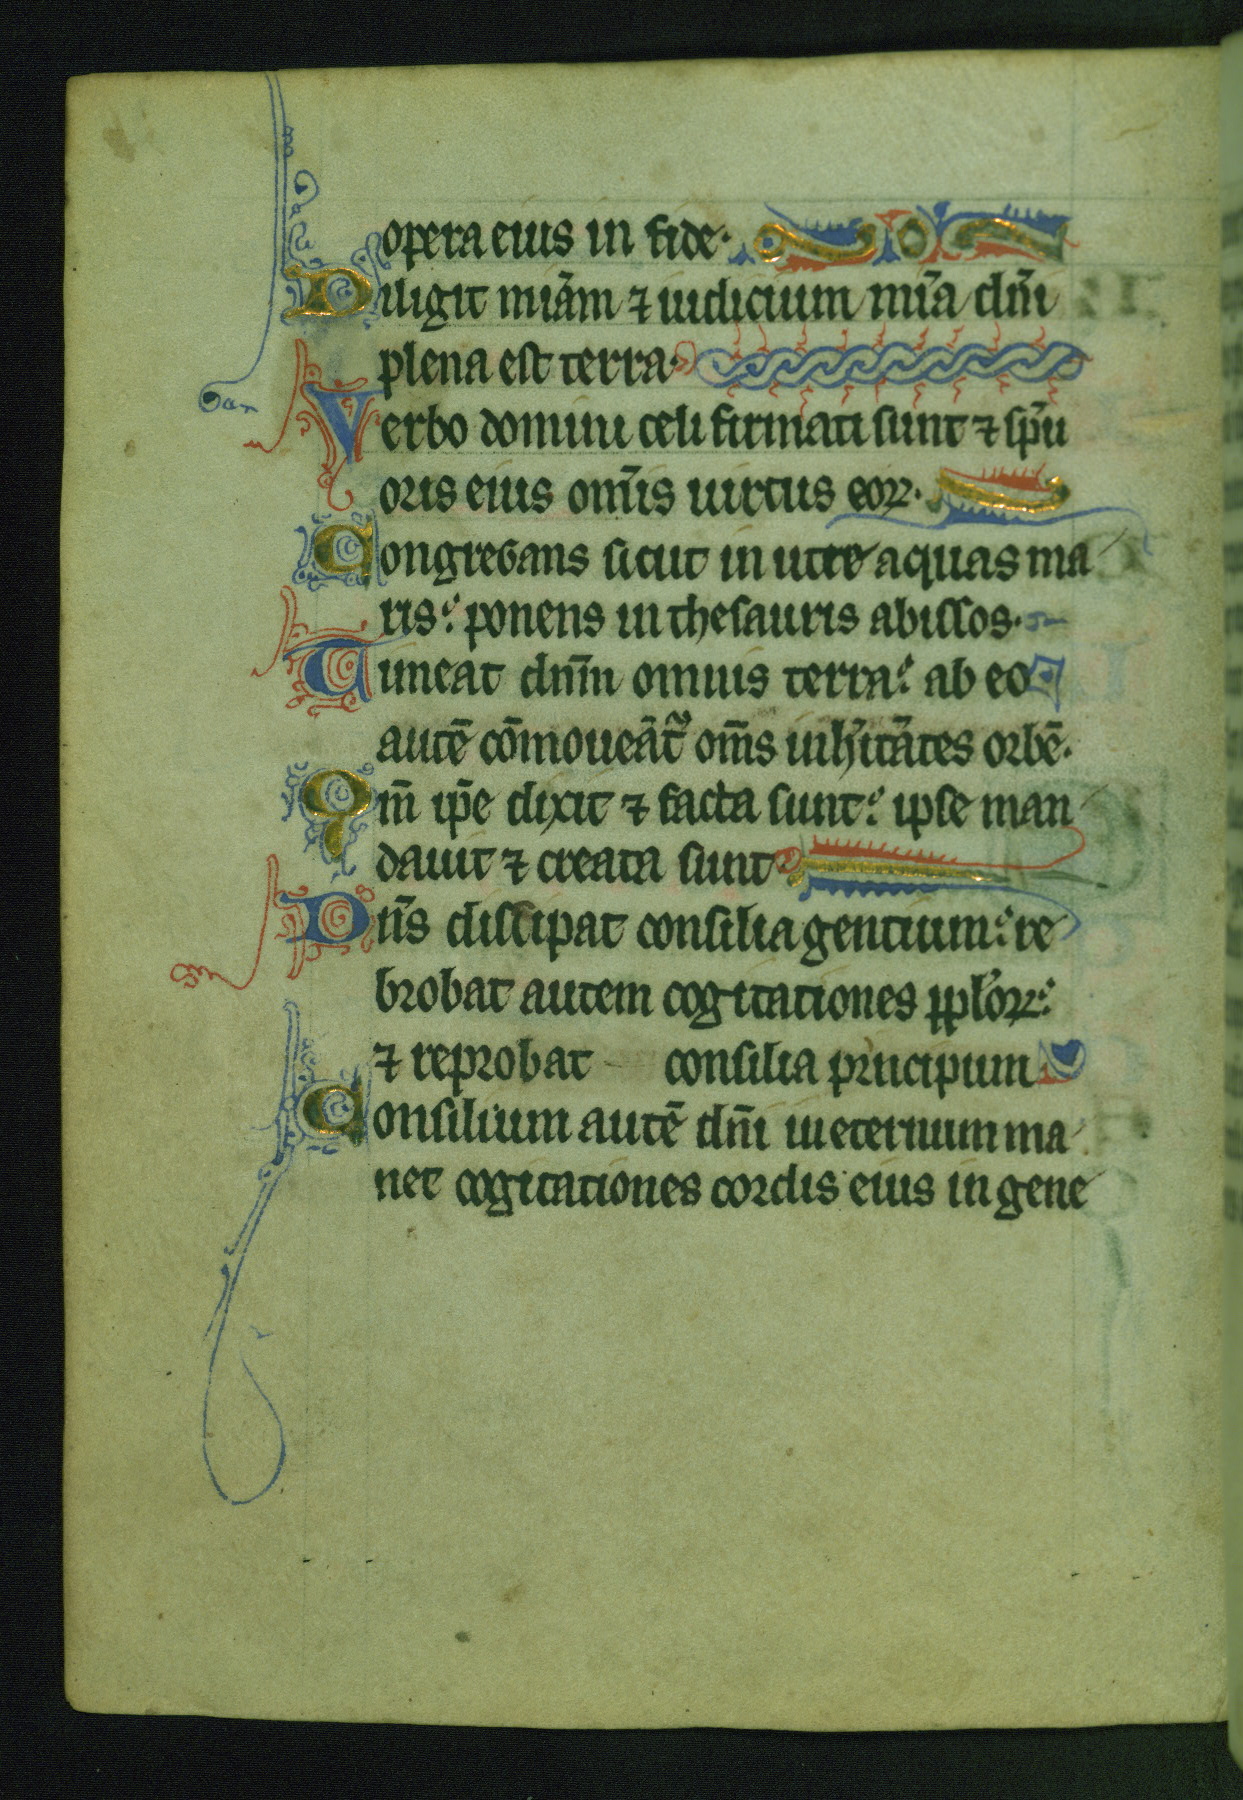 opera eius in fide.
Diligit mīam ⁊ iudicium mīa dn̄i
plena est terra.
Verbo domini celi firmati sunt ⁊ sp̄u
oris eius om̄is uirtus eoꝝ.
Congregans sicut in utre aquas ma
ris: ponens in thesauris abissos.
Timeat dn̄m omnis terra: ab eo
autē cōmoueāt᷑ om̄s inh̄itātes orbē.
Qm̄ ip̄e dixit ⁊ facta sunt: ipse man
dauit ⁊ creata sunt
Dn̄s dissipat consilia gentium: re
brobat autem cogitationes pp̄loꝝ:
⁊ reprobat consilia principum
Consilium autē dn̄i in eternum ma
net cogitationes cordis eius in gene